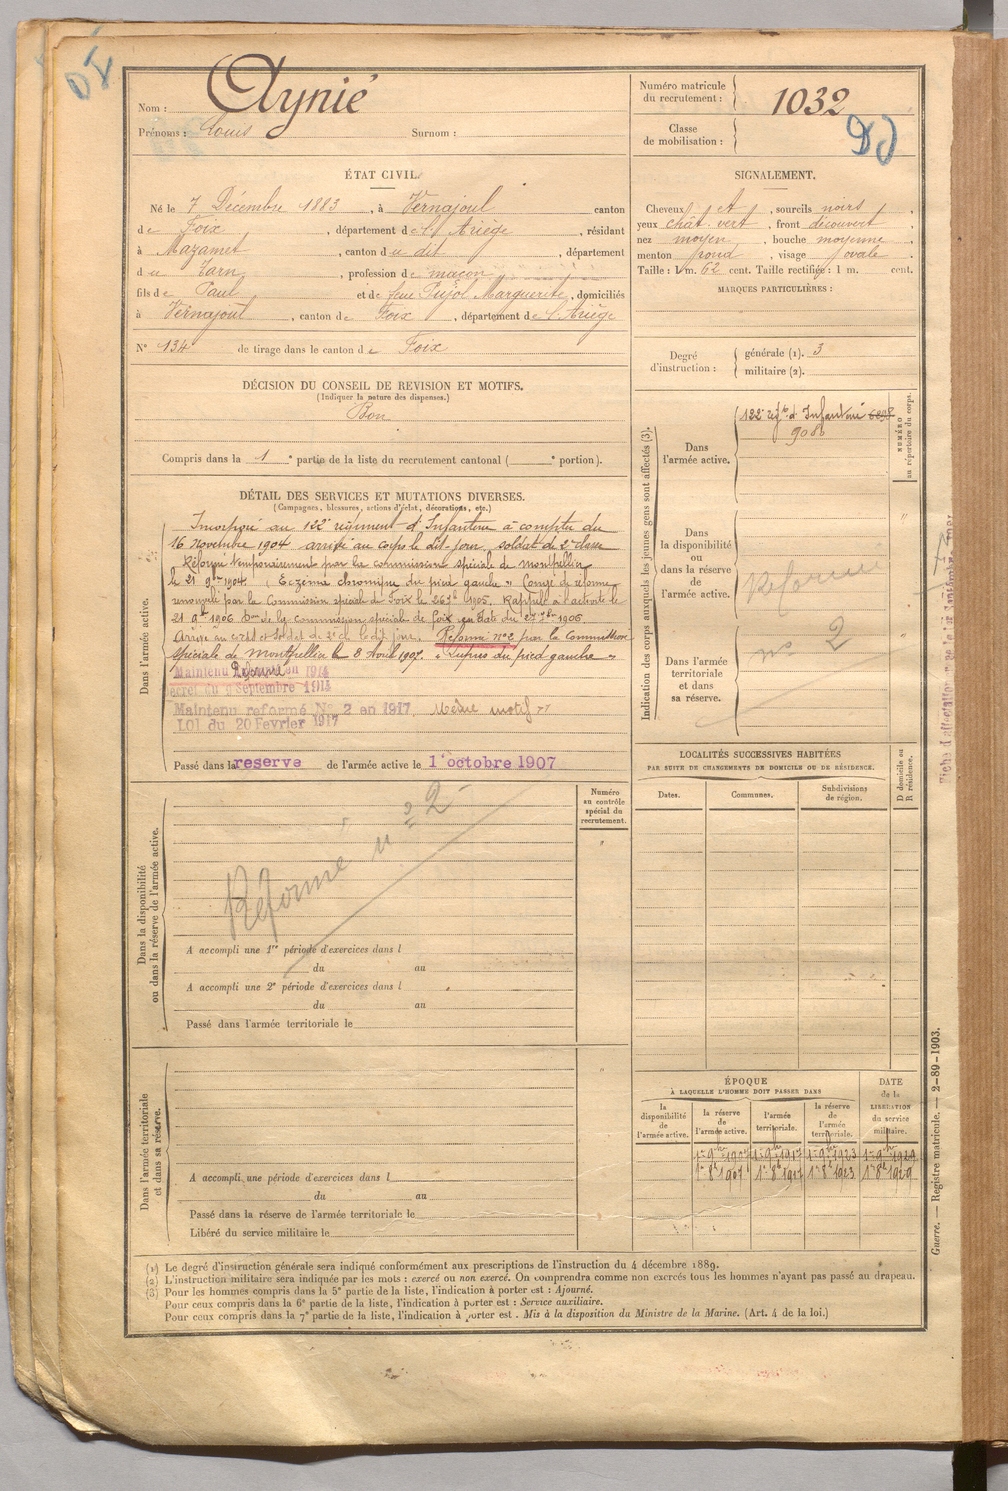 Nom : Aynié
Prénoms : Louis Surnom :
Numéro matricule du recrutement : 1032
Classe de mobilisation :
ÉTAT CIVIL.
Né le 7 Décembre 1883, à Vernajoul canton
de Foix, département de l'Ariège, résidant
à Mazamet, canton du dit, département
du Tarn, profession de maçon
fils de Paul et de feue Pujol Marguerite, domiciliés
à Vernajoul, canton de Foix, département de l'Ariège
N° 134 de tirage dans le canton de Foix
SIGNALEMENT.
Cheveux et , sourcils noirs,
yeux chât. vert, front découvert
nez moyen, bouche moyenne
menton rond, visage ovale.
Taille : 1 m. 62 cent. Taille rectifiée : 1 m. cent.
MARQUES PARTICULIÈRES :
Degré d'instruction : générale (1). 3
militaire (2).
DÉCISION DU CONSEIL DE REVISION ET MOTIFS.
(Indiquer la nature des dispenses.)
Bon
Compris dans la 1e partie de la liste du recrutement cantonal ( e portion).
DÉTAIL DES SERVICES ET MUTATIONS DIVERSES.
(Campagnes, blessures, actions d'éclat, décorations, etc.)
Dans l'armée active.
Incorporé au 122e régiment d'Infanterie à compter du
16 Novembre 1904 arrivé au corps le dit jour, soldat de 2e classe
Réformé temporairement par la commission spéciale de Montpellier
le 21 9bre 1904 (Eczéma chronique du pied gauche » Congé de réforme
renouvelé par la Commission spéciale de Foix le 26 7bre 1905. Rappelé à l'activité le
21 9bre 1906 Don de la commission spéciale de Foix en date du 27 7bre 1906
Arrivé au corps et soldat de 2e cl. le dit jour. Réformé n°2 par la Commission
spéciale de Montpellier le 8 Avril 1907. « Lupus du pied gauche »
Maintenu Réformé en 1914
Décret du 9 Septembre 1914
Maintenu reformé N° 2 en 1917, Même motif
LOI du 20 Fevrier 1917
Passé dans la reserve de l'armée active le 1er octobre 1907
Indication des corps auxquels les jeunes gens sont affectés (3).
NUMÉRO au répertoire du corps.
Dans l'armée active.
122e régt d'Infanterie 6898
9080
Dans la disponibilité ou dans la réserve de l'armée active.
Réformé
n° 2
Dans l'armée territoriale et dans sa réserve.
LOCALITÉS SUCCESSIVES HABITÉES
PAR SUITE DE CHANGEMENTS DE DOMICILE OU DE RÉSIDENCE.
Dates. Communes. Subdivisions de région.
D domicile ou R résidence.
Dans la disponibilité ou dans la réserve de l'armée active.
Numéro au contrôle spécial du recrutement.
Réformé n° 2
A accompli une 1re période d'exercices dans l
du au
A accompli une 2e période d'exercices dans l
du au
Passé dans l'armée territoriale le
Dans l'armée territoriale et dans sa réserve.
A accompli une période d'exercices dans l
du au
Passé dans la réserve de l'armée territoriale le
Libéré du service militaire le
ÉPOQUE
À LAQUELLE L'HOMME DOIT PASSER DANS
DATE de la LIBÉRATION du service militaire.
la disponibilité de l'armée active.
la réserve de l'armée active.
l'armée territoriale.
la réserve de l'armée territoriale.
1er 9bre 1907 1er 9bre 1917 1er 9bre 1923 1er 9bre 1929
1er 8bre 1907 1er 8bre 1917 1er 8bre 1923 1er 8bre 1929
(1) Le degré d'instruction générale sera indiqué conformément aux prescriptions de l'instruction du 4 décembre 1889.
(2) L'instruction militaire sera indiquée par les mots : exercé ou non exercé. On comprendra comme non exercés tous les hommes n'ayant pas passé au drapeau.
(3) Pour les hommes compris dans la 5e partie de la liste, l'indication à porter est : Ajourné.
Pour ceux compris dans la 6e partie de la liste, l'indication à porter est : Service auxiliaire.
Pour ceux compris dans la 7e partie de la liste, l'indication à porter est. Mis à la disposition du Ministre de la Marine. (Art. 4 de la loi.)
Guerre. — Registre matricule. — 2-89-1903.